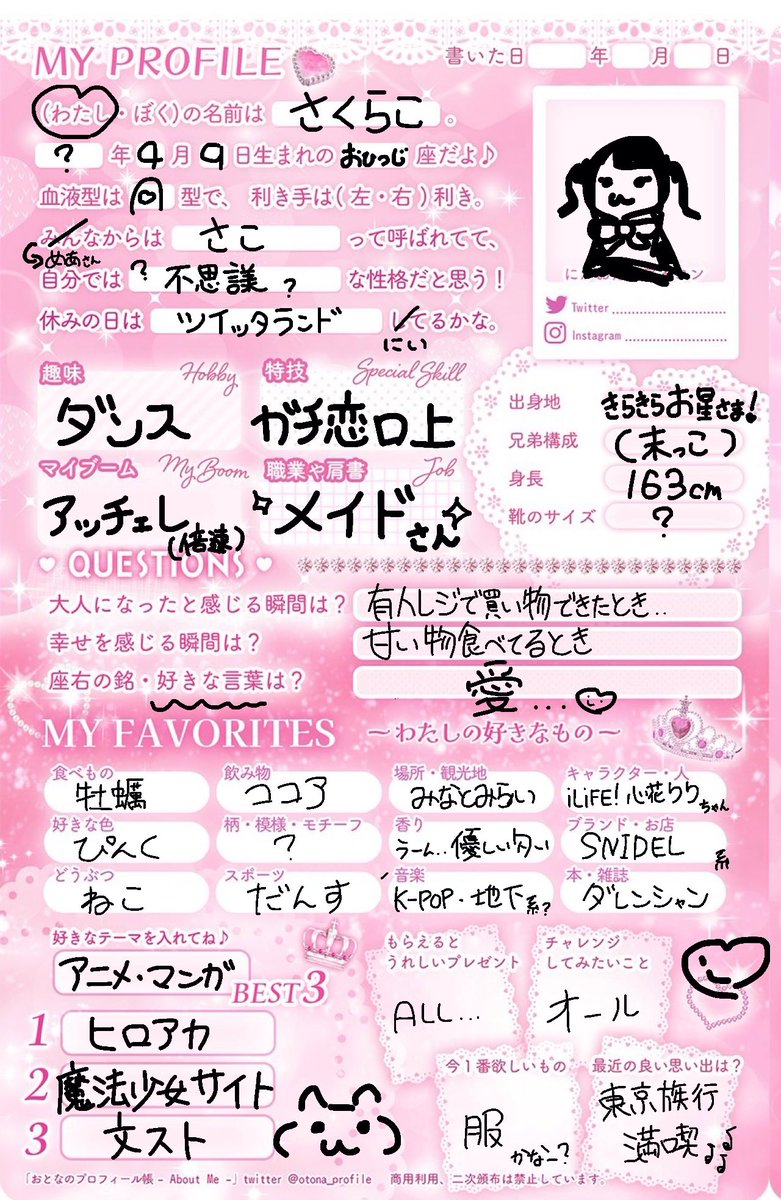 MY PROFILE
書いた日 年 月 日
(わたし・ぼく)の名前は さくらこ 。
? 年 4 月 9 日生まれの おひつじ 座だよ♪
血液型は A 型で、 利き手は(左・右)利き。
みんなからは さこ って呼ばれてて、
めあさん
自分では ? 不思議 ? な性格だと思う!
休みの日は ツイッタランド してるかな。
にい
Twitter
Instagram
趣味 Hobby
ダンス
特技 Special Skill
ガチ恋口上
マイブーム My Boom
アッチェレ(倍速)
職業や肩書 Job
メイドさん
出身地 きらきらお星さま!
兄弟構成 (末っこ)
身長 163cm
靴のサイズ ?
QUESTIONS
大人になったと感じる瞬間は? 有人レジで買い物できたとき..
幸せを感じる瞬間は? 甘い物食べてるとき
座右の銘・好きな言葉は? 愛...
MY FAVORITES ~わたしの好きなもの~
食べもの 牡蠣
飲み物 ココア
場所・観光地 みなとみらい
キャラクター・人 iLiFE!心花りりちゃん
好きな色 ぴんく
柄・模様・モチーフ ?
香り うーん..優しい匂い
ブランド・お店 SNIDEL 系
どうぶつ ねこ
スポーツ だんす
音楽 K-POP・地下系?
本・雑誌 ダレンシャン
好きなテーマを入れてね♪
アニメ・マンガ BEST3
1 ヒロアカ
2 魔法少女サイト
3 文スト
もらえると
うれしいプレゼント
ALL...
チャレンジ
してみたいこと
オール
今1番欲しいもの
服
かなー?
最近の良い思い出は?
東京旅行
満喫♪♪
「おとなのプロフィール帳 - About Me -」twitter @otona_profile 商用利用、二次頒布は禁止しています。